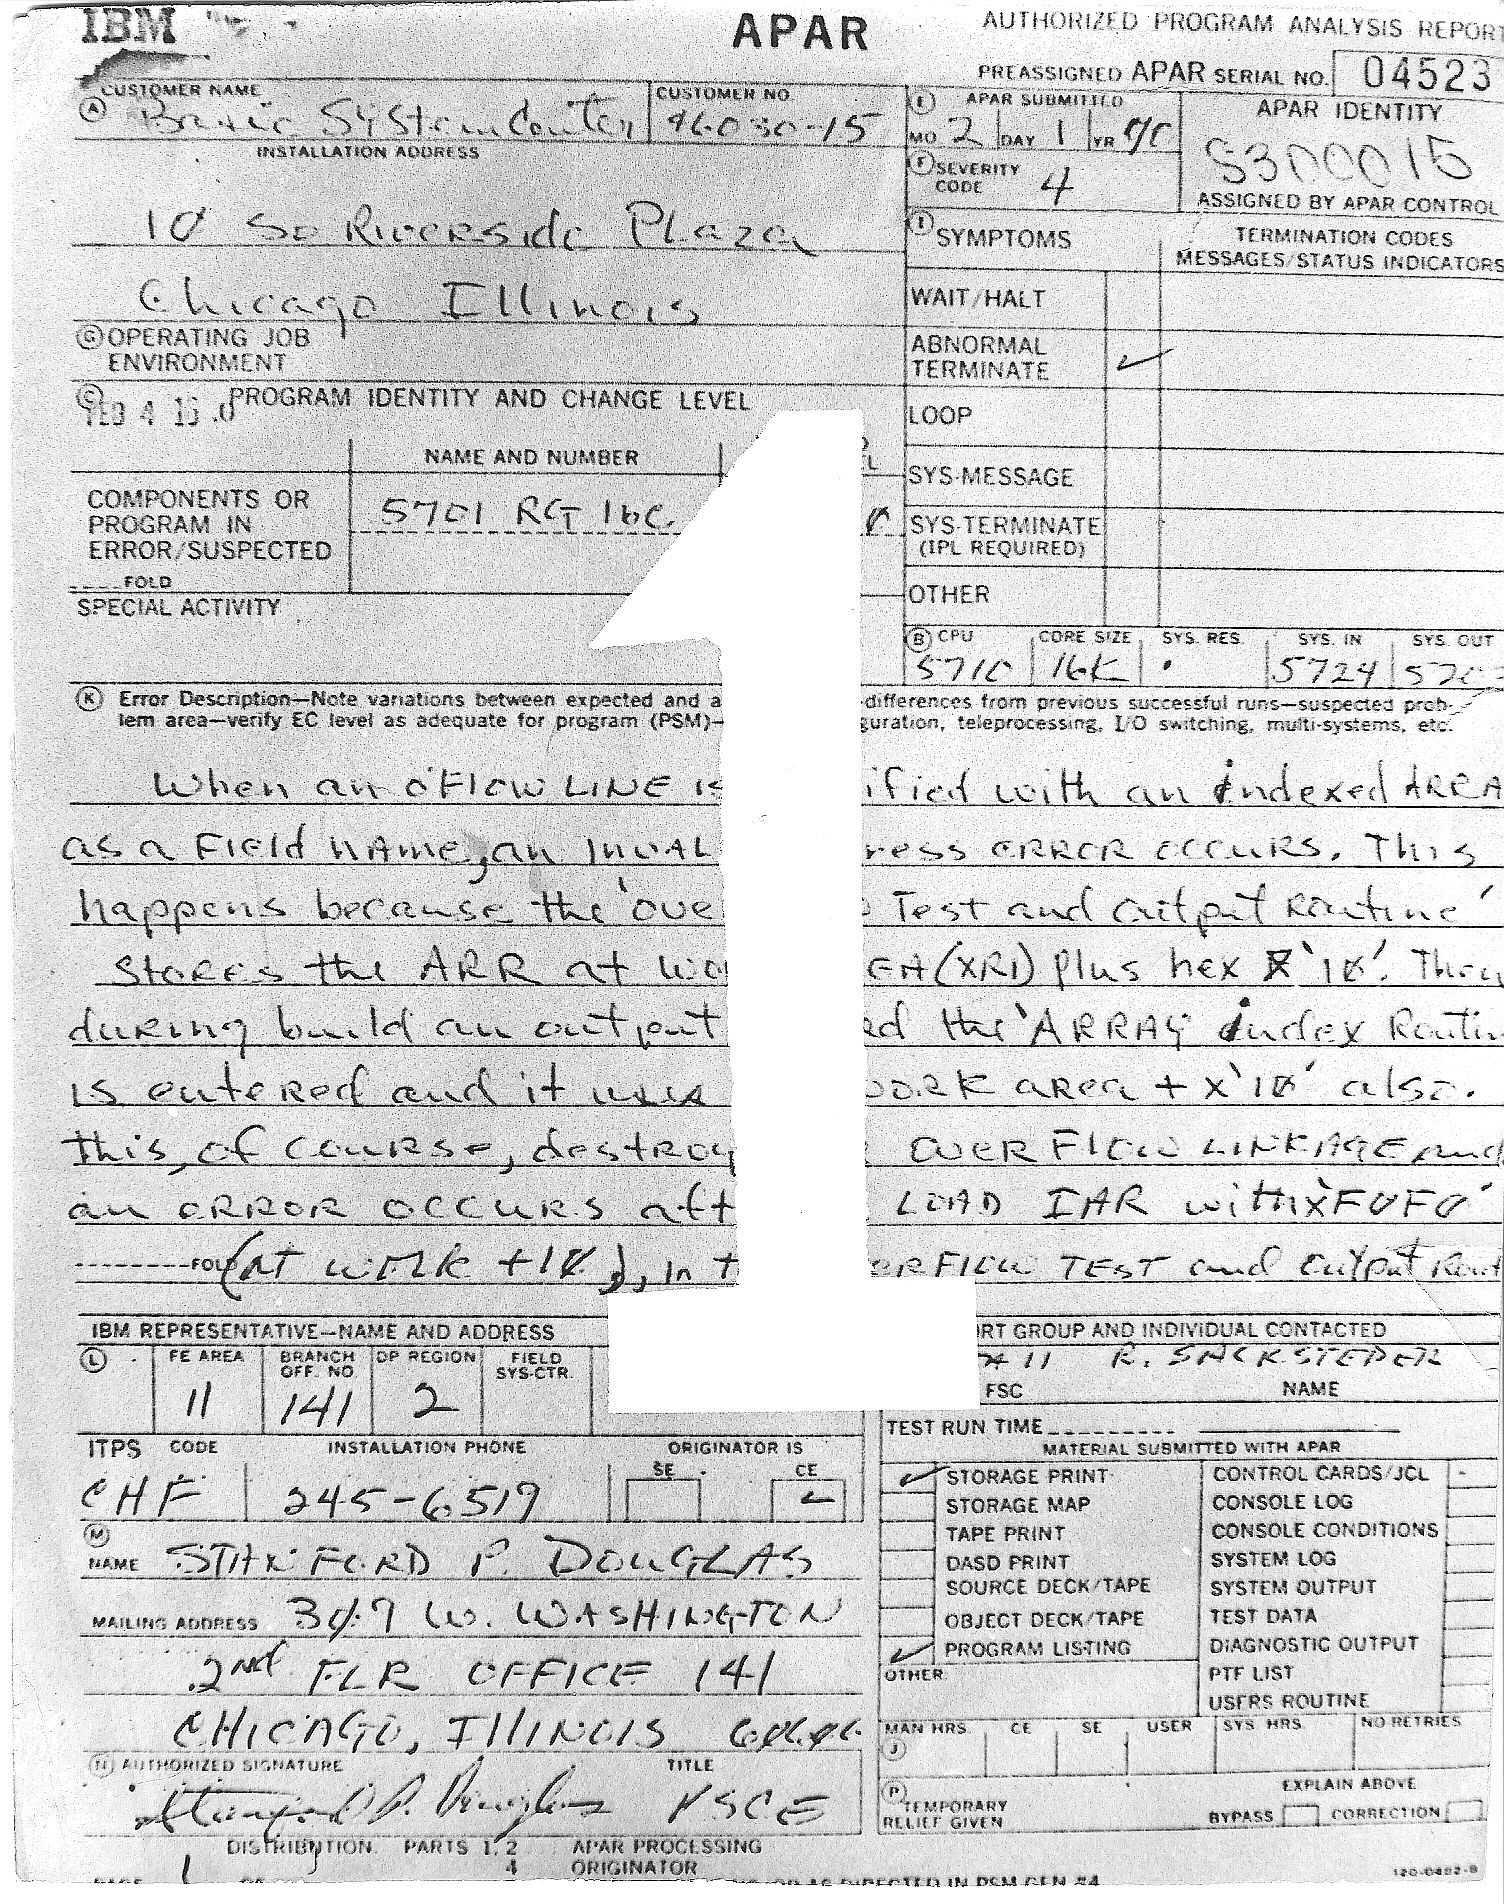 IBM APAR AUTHORIZED PROGRAM ANALYSIS REPORT
PREASSIGNED APAR SERIAL NO. 04523
CUSTOMER NAME CUSTOMER NO.
A Basic System Center 96030-15
INSTALLATION ADDRESS
10 So Riverside Plaza
Chicago Illinois
E APAR SUBMITTED
MO 2 DAY 1 YR 70
APAR IDENTITY
S300015
ASSIGNED BY APAR CONTROL
F SEVERITY CODE 4
SYMPTOMS
TERMINATION CODES
MESSAGES/STATUS INDICATORS
WAIT/HALT
ABNORMAL
TERMINATE ✓
LOOP
SYS-MESSAGE
SYS-TERMINATE
(IPL REQUIRED)
OTHER
G OPERATING JOB
ENVIRONMENT
C PROGRAM IDENTITY AND CHANGE LEVEL
FEB 4
NAME AND NUMBER
COMPONENTS OR
PROGRAM IN
ERROR/SUSPECTED
5701 RG1
FOLD
SPECIAL ACTIVITY
B CPU CORE SIZE SYS. RES. SYS. IN SYS. OUT
5710 16K 5724
K Error Description—Note variations between expected and a differences from previous successful runs—suspected prob-
lem area—verify EC level as adequate for program (PSM)— guration, teleprocessing, I/O switching, multi-systems, etc.
When an o'Flow LINE is ified with an indexed ARRA
as a Field NAME, an INVAL ress ERROR OCCURS. This
happens because the 'ove Test and output Routine'
Stores the ARR at wo EA (XR1) plus hex X'10'. Then
during build an output ed the 'ARRAY index Routin
is entered and it uses work area + X'10' also.
this, of course, destroy OVERFLOW LINKAGE and
an ERROR OCCURS aft LOAD IAR with X'F0F0'
FOLD (at work +10), in t ERFLOW TEST and output Rout
IBM REPRESENTATIVE—NAME AND ADDRESS
RT GROUP AND INDIVIDUAL CONTACTED
11 R. SACKSTEDER
FSC NAME
L FE AREA BRANCH OFF. NO DP REGION FIELD SYS-CTR.
11 141 2
TEST RUN TIME
ITPS CODE INSTALLATION PHONE ORIGINATOR IS
SE CE
CHF 245-6519 ✓
MATERIAL SUBMITTED WITH APAR
✓ STORAGE PRINT CONTROL CARDS/JCL
STORAGE MAP CONSOLE LOG
TAPE PRINT CONSOLE CONDITIONS
DASD PRINT SYSTEM LOG
SOURCE DECK/TAPE SYSTEM OUTPUT
OBJECT DECK/TAPE TEST DATA
✓ PROGRAM LISTING DIAGNOSTIC OUTPUT
OTHER PTF LIST
USERS ROUTINE
M
NAME STANFORD P. DOUGLAS
MAILING ADDRESS 309 W. WASHINGTON
2nd FLR OFFICE 141
CHICAGO, ILLINOIS 60606
MAN HRS. CE SE USER SYS HRS. NO RETRIES
J
N AUTHORIZED SIGNATURE TITLE
Stanford P. Douglas PSCE
P TEMPORARY
RELIEF GIVEN
EXPLAIN ABOVE
BYPASS CORRECTION
DISTRIBUTION PARTS 1, 2 APAR PROCESSING
4 ORIGINATOR
120-0482-8
PAGE 1 AS DIRECTED IN PSM GEN #4
1